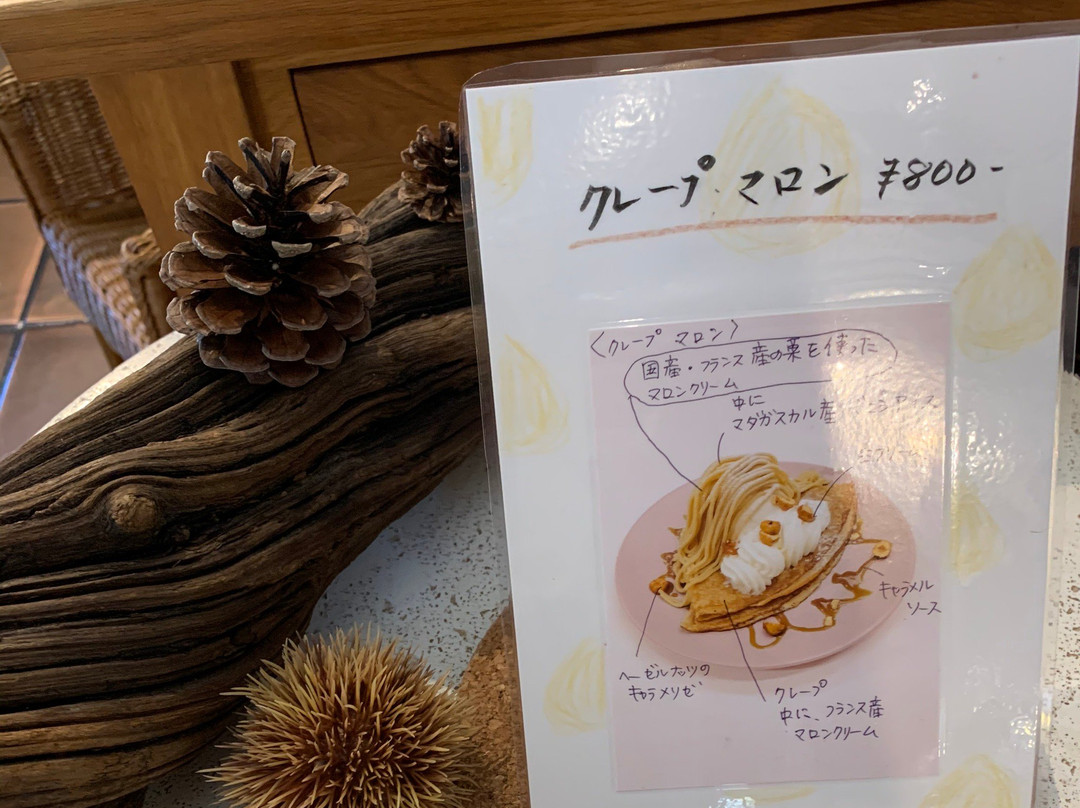 クレープ マロン ¥800-
〈クレープ マロン〉
国産・フランス産の栗を使った
マロンクリーム
中に
マダガスカル産バニラアイス
生クリーム
キャラメル
ソース
ヘーゼルナッツの
キャラメリゼ
クレープ
中に、フランス産
マロンクリーム